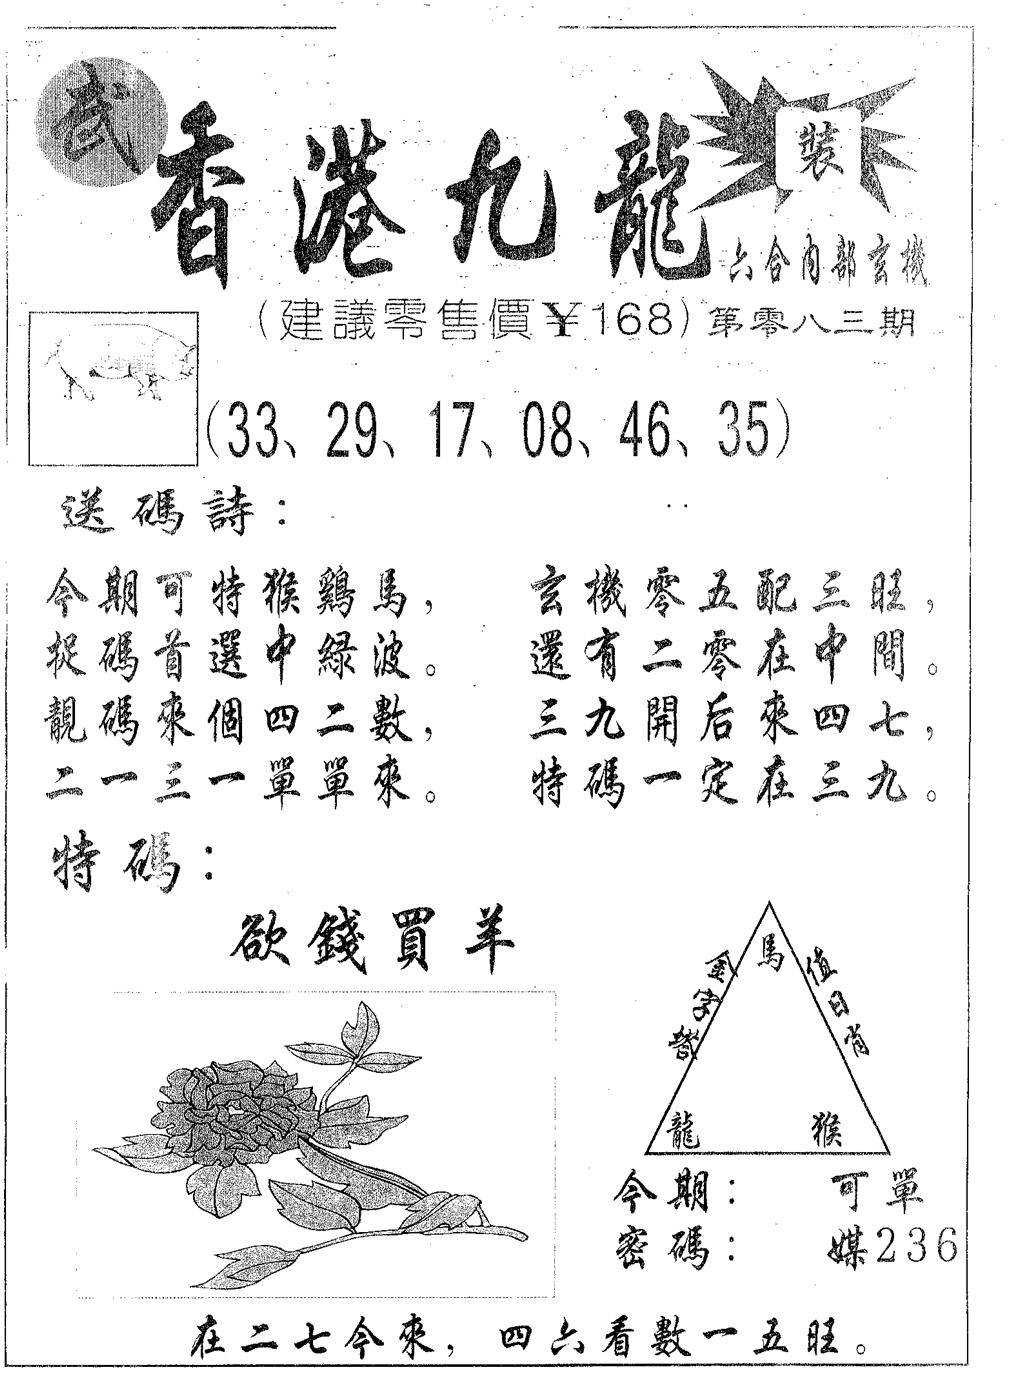 武
香港九龍
裝
六合内部玄機
(建議零售價¥168)第零八三期
(33、29、17、08、46、35)
送碼詩:
今期可特猴鷄馬,
捉碼首選中綠波。
靚碼來個四二數,
二一三一單單來。
玄機零五配三旺,
還有二零在中間。
三九開后來四七,
特碼一定在三九。
特碼:
欲錢買羊
金字
值日肖
馬
龍 猴
今期: 可單
密碼: 媒236
在二七今來,四六看數一五旺。